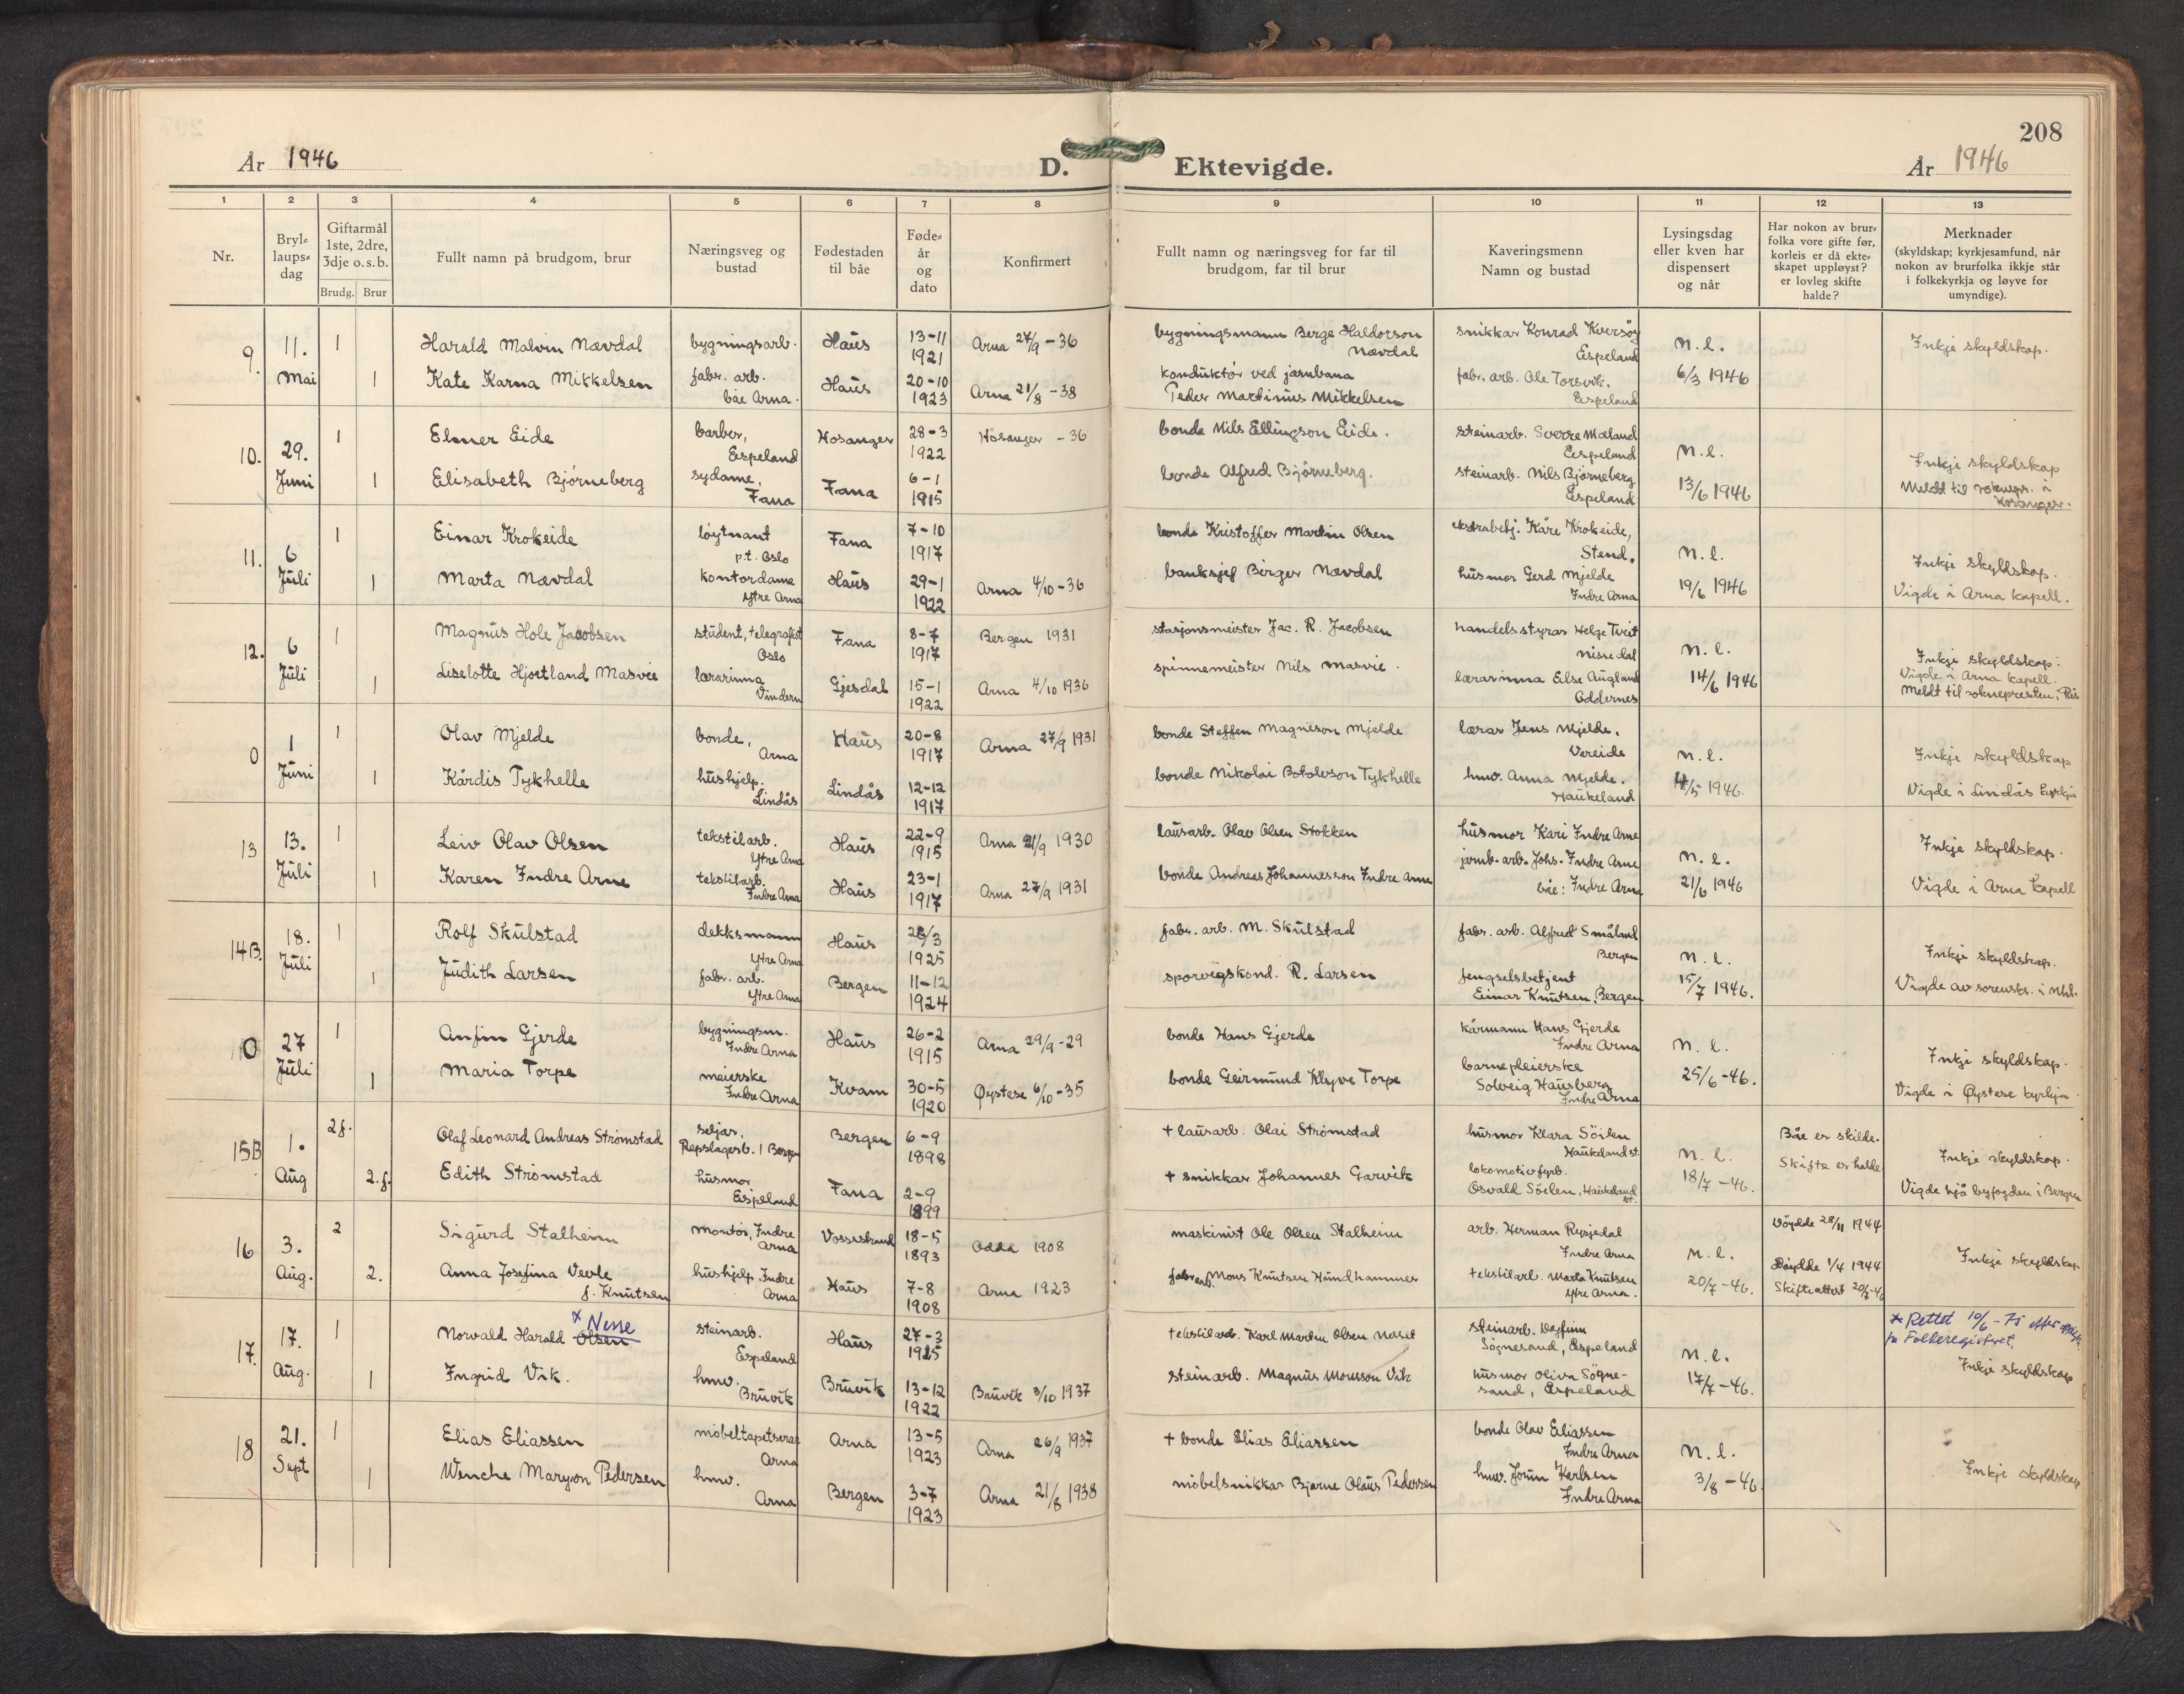 År 1946
D. Ektevigde.
208
År 1946
1 2 3 4 5 6 7 8 9 10 11 12 13
Nr.
Bryl-
laups-
dag
Giftarmål
1ste, 2dre,
3dje o.s.b.
Brudg. Brur
Fullt namn på brudgom, brur
Næringsveg og
bustad
Fødestaden
til båe
Føde-
år
og
dato
Konfirmert
Fullt namn og næringsveg for far til
brudgom, far til brur
Kaveringsmenn
Namn og bustad
Lysingsdag
eller kven har
dispensert
og når
Har nokon av brur-
folka vore gifte før,
korleis er då ekte-
skapet uppløyst?
er lovleg skifte
halde?
Merknader
(skyldskap; kyrkjesamfund, når
nokon av brurfolka ikkje står
i folkekyrkja og løyve for
umyndige).
9. 11. Mai
1 Harald Malvin Nævdal bygningsarb. Haus 13-11 1921 Arna 27/9-36 bygningsmann Berge Haldorson Nævdal snikkar Konrad Kversøy Espeland n.l. Inkje skyldskap.
1 Kate Karna Mikkelsen fabr. arb. båe Arna. Haus 20-10 1923 Arna 21/8-38 konduktør ved jarnbana Peder Martinus Mikkelsen fabr. arb. Ole Torsvik. Espeland 6/3 1946
10. 29. Juni
1 Elmer Eide barber, Espeland Hosanger 28-3 1922 Hosanger -36 bonde Nils Ellingson Eide. steinarb. Sverre Mæland Espeland n.l. Inkje skyldskap
1 Elisabeth Bjørneberg sydame, Fana Fana 6-1 1915 bonde Alfred Bjørneberg. steinarb. Nils Bjørneberg Espeland 13/6 1946 Meldt til soknepr. i Hosanger.
11. 6 Juli
1 Einar Krokeide løytnant p.t. Oslo Fana 7-10 1917 bonde Kristoffer Martin Olsen ekstrabetj. Kåre Krokeide, Stend. n.l. Inkje skyldskap.
1 Marta Nævdal kontordame Ytre Arna Haus 29-1 1922 Arna 4/10-36 banksjef Birger Nævdal husmor Gerd Mjelde Indre Arna 19/6 1946 Vigde i Arna kapell.
12. 6 Juli
1 Magnus Hole Jacobsen student, telegrafist Oslo Fana 8-7 1917 Bergen 1931 stasjonsmeister Jac. R. Jacobsen handelsstyrar Helge Tveit Nisedal n.l. Inkje skyldskap.
1 Liselotte Hjortland Masvie lærarinna Vindern Gjesdal 15-1 1922 Arna 4/10 1936 spinnemeister Nils Masvie. lærarinna Else Augland Oddernes 14/6 1946 Vigde i Arna kapell. Meldt til soknepresten, Ris
0 1 Juni
1 Olav Mjelde bonde, Arna Haus 20-8 1917 Arna 27/9 1931 bonde Steffen Magneson Mjelde lærar Jens Mjelde. Vereide n.l. Inkje skyldskap
1 Kårdis Tykhelle hushjelp. Lindås Lindås 12-12 1917 bonde Nikolai Botolvson Tykhelle hmv. Anna Mjelde. Haukeland /5 1946. Vigde i Lindås kyrkja
13 13. Juli
1 Leiv Olav Olsen tekstilarb. Ytre Arna Haus 22-9 1915 Arna 21/9 1930 lausarb. Olav Olsen Stokken husmor Kari Indre Arne n.l. Inkje skyldskap.
1 Karen Indre Arne tekstilarb. Indre Arna Haus 23-1 1917 Arna 27/9 1931 bonde Andreas Johannesson Indre Arne jarnb. arb. Johs. Indre Arne båe: Indre Arna 21/6 1946 Vigde i Arna kapell
14B. 18. Juli
1 Rolf Skulstad dekksmann Ytre Arna Haus 28/3 1925 fabr. arb. M. Skulstad fabr. arb. Alfred Småland Bergen n.l. Inkje skyldskap.
1 Judith Larsen fabr. arb. Ytre Arna Bergen 11-12 1924 sporvegskond. R. Larsen fengselsbetjent Einar Knutsen, Bergen 15/7 1946. Vigde av sorenskr. i Nhl.
0 27 Juli
1 Anfinn Gjerde bygningsm. Indre Arna Haus 26-2 1915 Arna 29/9-29 bonde Hans Gjerde kårmann Hans Gjerde Indre Arna n.l. Inkje skyldskap.
1 Maria Torpe meierske Indre Arna Kvam 30-5 1920 Øystese 6/10-35 bonde Geirmund Klyve Torpe barnepleierske Solveig Hausberg Indre Arna 25/6-46. Vigde i Øystese kyrkja.
15B 1. Aug
2f. Olaf Leonard Andreas Strømstad seljar, Repslagerb. 1 Bergen Bergen 6-9 1898 + lausarb. Olai Strømstad husmor Klara Söilen Haukeland st. n.l. Båe er skilde. Inkje skyldskap.
2.f. Edith Strømstad husmor Espeland Fana 2-9 1899 + snikkar Johannes Garvik lokomotivfyrb. Osvald Söilen, Haukeland st. 18/7-46. Skifte er halde Vigde hjå byfogden i Bergen
16 3. Aug.
2 Sigurd Stalheim montør, Indre Arna Vossestrand 18-5 1893 Odda 1908 maskinist Ole Olsen Stalheim arb. Herman Rysjedal Indre Arna n.l. Døydde 28/11 1944 Inkje skyldskap
2. Anna Josefina Vevle f. Knutsen hushjelp, Indre Arna Haus 7-8 1908 Arna 1923 fabr. arb. Mons Knutsen Hundhammer tekstilarb. Marta Knutsen Ytre Arna. 20/7-46. Døydde 1/4 1944 Skifteattest 20/7-46
17. 17. Aug.
1 Norvald Harald Olsen x Nesse steinarb. Espeland Haus 27-3 1915 tekstilarb. Karl Martin Olsen steinarb. Dagfinn Sögnesand, Espeland n.l. x Rettet 10/6-75 etter fra Folkeregisteret.
1 Ingrid Vik. hmv. Bruvik Bruvik 13-12 1922 Bruvik 3/10 1937 steinarb. Magnus Monsson Vik husmor Oliva Sögne-sand, Espeland 17/7-46. Inkje skyldskap
18 21. Sept
1 Elias Eliassen møbeltapetserar Arna Arna 13-5 1923 Arna 26/9 1937 + bonde Elias Eliassen bonde Olav Eliassen Indre Arna n.l. Inkje skyldskap
1 Wenche Maryon Pedersen hmv. Arna Bergen 3-7 1923 Arna 21/8 1938 møbelsnikkar Bjarne Olaus Pedersen hmv. Jorun Kerlsen Indre Arna 3/8-46.